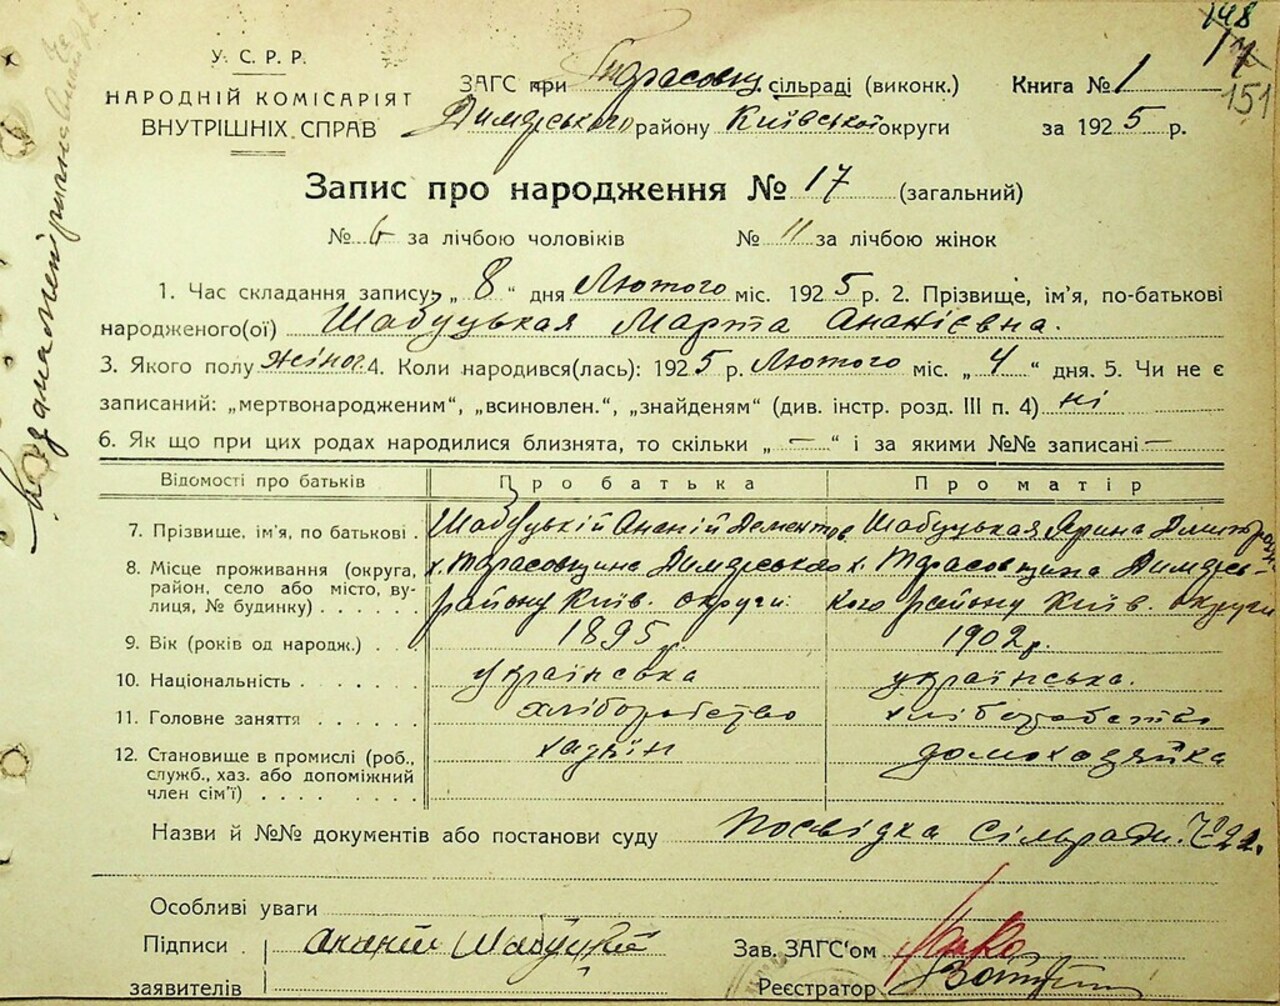 148
17
151
У. С. Р. Р.
НАРОДНІЙ КОМІСАРІЯТ
ВНУТРІШНІХ СПРАВ
ЗАГС при Тарасовщ. сільраді (виконк.) Книга № 1
Димерського району Київської округи за 1925 р.
Запис про народження № 17 (загальний)
№ 6 за лічбою чоловіків № 11 за лічбою жінок
1. Час складання запису: „ 8 “ дня Лютого міс. 1925 р. 2. Прізвище, ім’я, по-батькові
народженого(ої) Шабуцькая Марта Ананієвна.
3. Якого полу жіноч. 4. Коли народився(лась): 1925 р. Лютого міс. „ 4 “ дня. 5. Чи не є
записаний: „мертвонародженим“, „всиновлен.“, „знайденям“ (див. інстр. розд. III п. 4) ні
6. Як що при цих родах народилися близнята, то скільки „ — “ і за якими №№ записані —
Відомості про батьків Про батька Про матір
7. Прізвище, ім’я, по батькові . Шабуцькій Ананій Дементов. Шабуцькая Ярина
8. Місце проживання (округа, х. Тарасовщина Димерського х. Тарасовщина Димерсь-
район, село або місто, ву- району Київ. округи. кого району Київ. округи
лиця, № будинку) . . . . . .
9. Вік (років од народж.) . . 1895 р. 1902 р.
10. Національність . . . . . . українська українська.
11. Головне заняття . . . . . . хліборобство хліборобство
12. Становище в промислі (роб., хазяїн домохозяйка
служб., хаз. або допоміжний
член сім’ї) . . . . . . . .
Назви й №№ документів або постанови суду Посвідка Сільради. № 22.
Особливі уваги
Підписи . Ананій Шабуцкій Зав. ЗАГС‘ом
заявителів Реєстратор